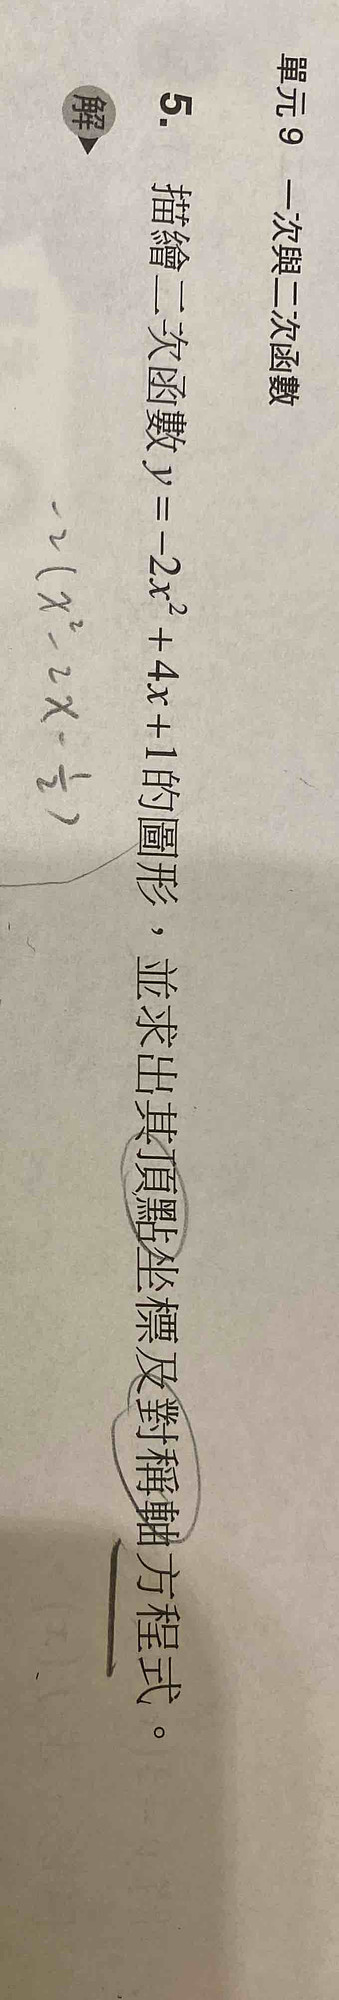 單元 9 一次與二次函數
5. 描繪二次函數 y = -2x² + 4x + 1 的圖形，並求出其頂點坐標及對稱軸方程式。
解
-2(x² - 2x - 1/2)